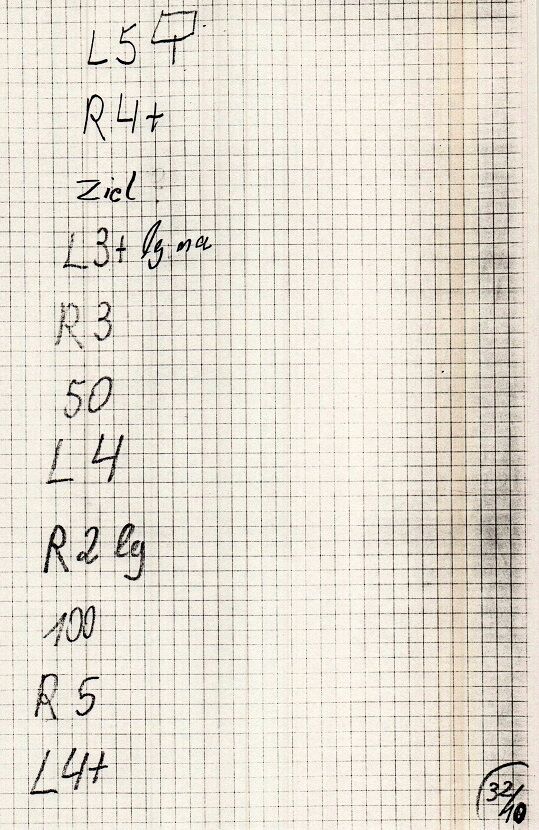 L5
R4+
Ziel
L3+ lg na
R3
50
L4
R2 lg
100
R5
L4+
32/40